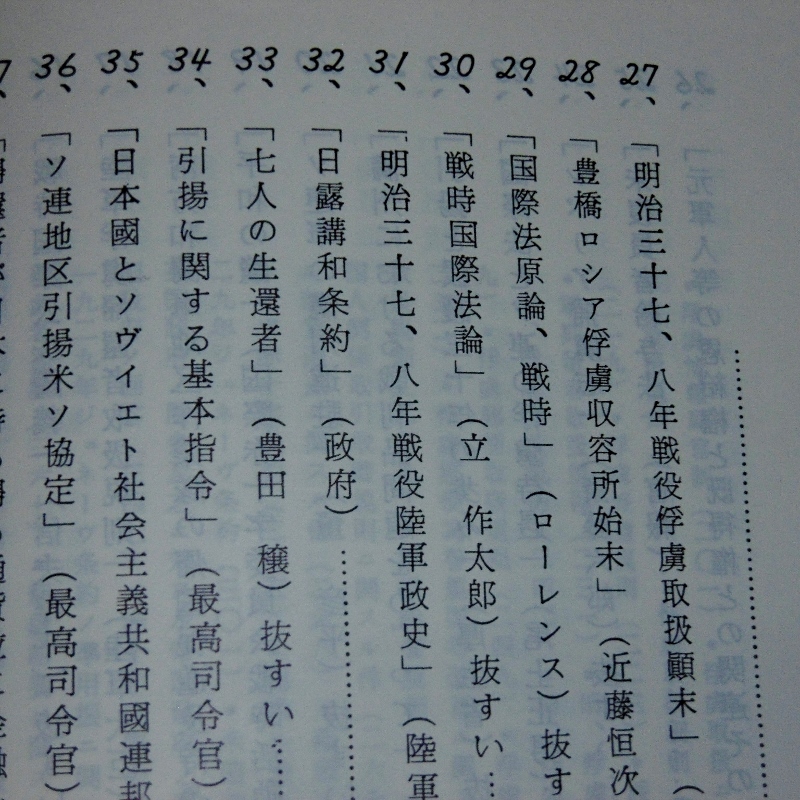 27、「明治三十七、八年戦役俘虜取扱顚末」（
28、「豊橋ロシア俘虜収容所始末」（近藤恒次
29、「国際法原論、戦時」（ローレンス）抜す
30、「戦時国際法論」（立　作太郎）抜すい…
31、「明治三十七、八年戦役陸軍政史」（陸軍
32、「日露講和条約」（政府）…………
33、「七人の生還者」（豊田　穣）抜すい……
34、「引揚に関する基本指令」（最高司令官）
35、「日本國とソヴイエト社会主義共和國連邦
36、「ソ連地区引揚米ソ協定」（最高司令官）